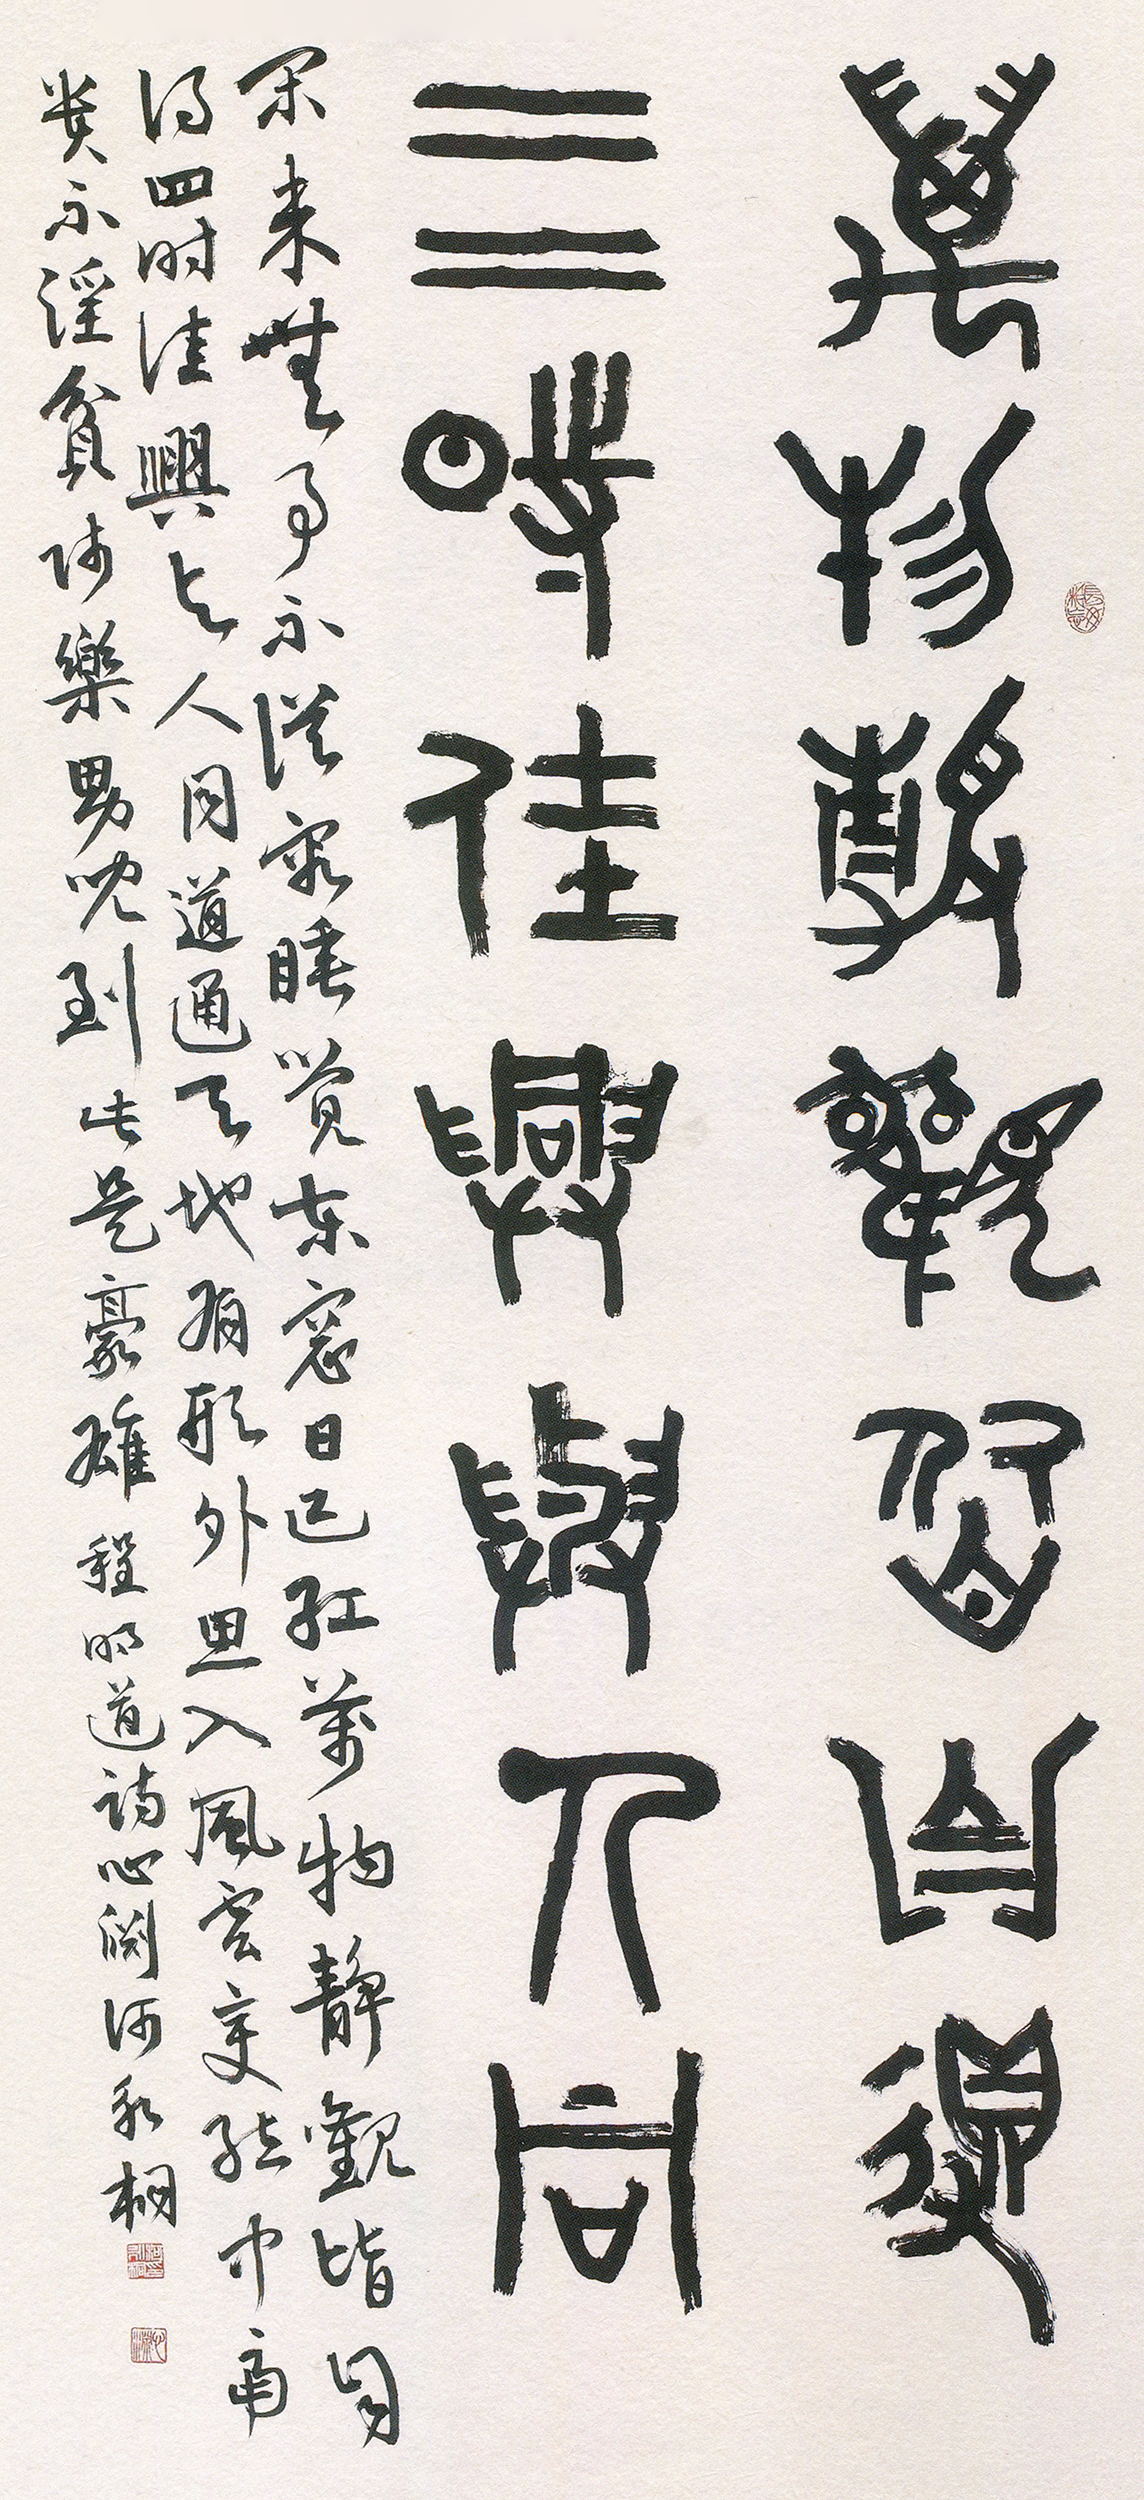 萬物靜觀皆自得
四時佳興與人同
閑来無事不從容睡覺东窓日已紅萬物靜觀皆自
得四时佳興与人同道通天地有形外思入風雲变態中富
贵不淫貧賤樂男児到此是豪雄程明道詩心渊